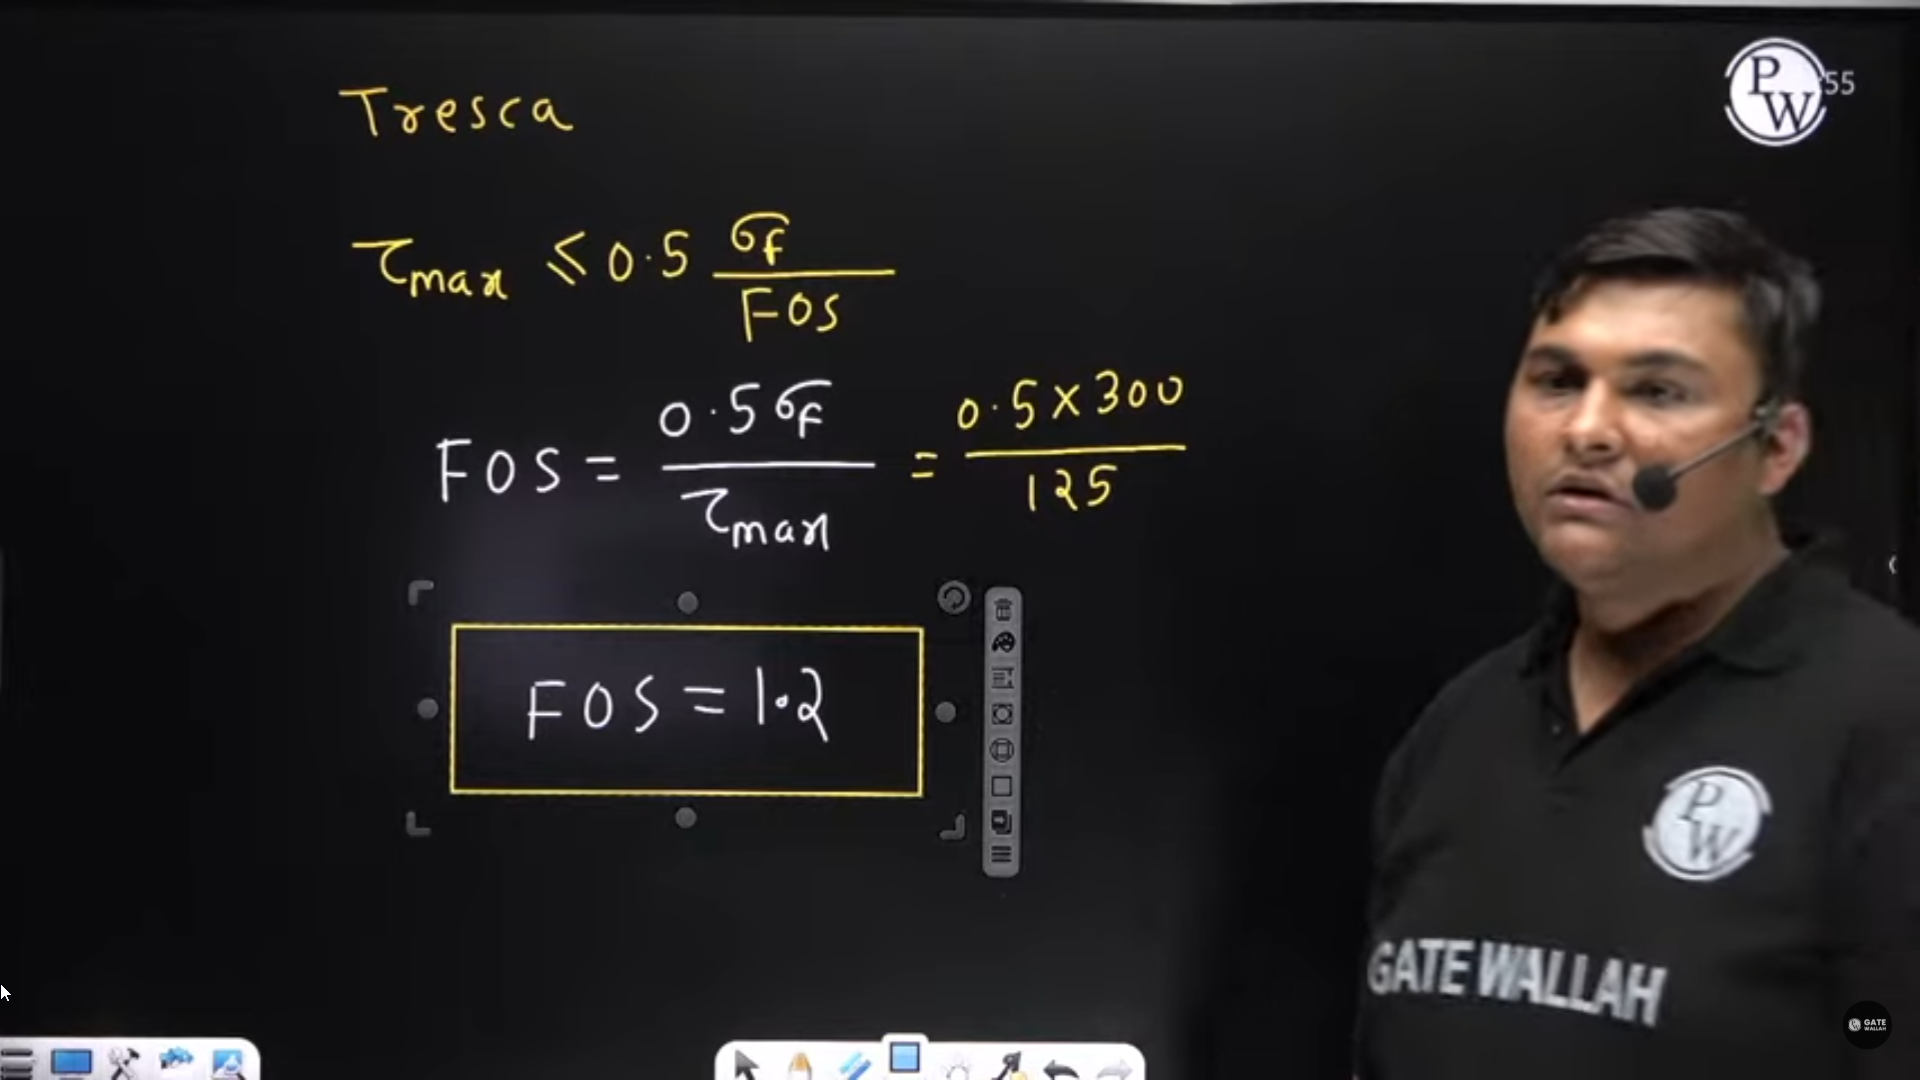 PW
55
Tresca
τmax ≤ 0.5 σf / FOS
FOS = 0.5 σf / τmax = 0.5 × 300 / 125
FOS = 1.2
PW
GATE WALLAH
GATE WALLAH